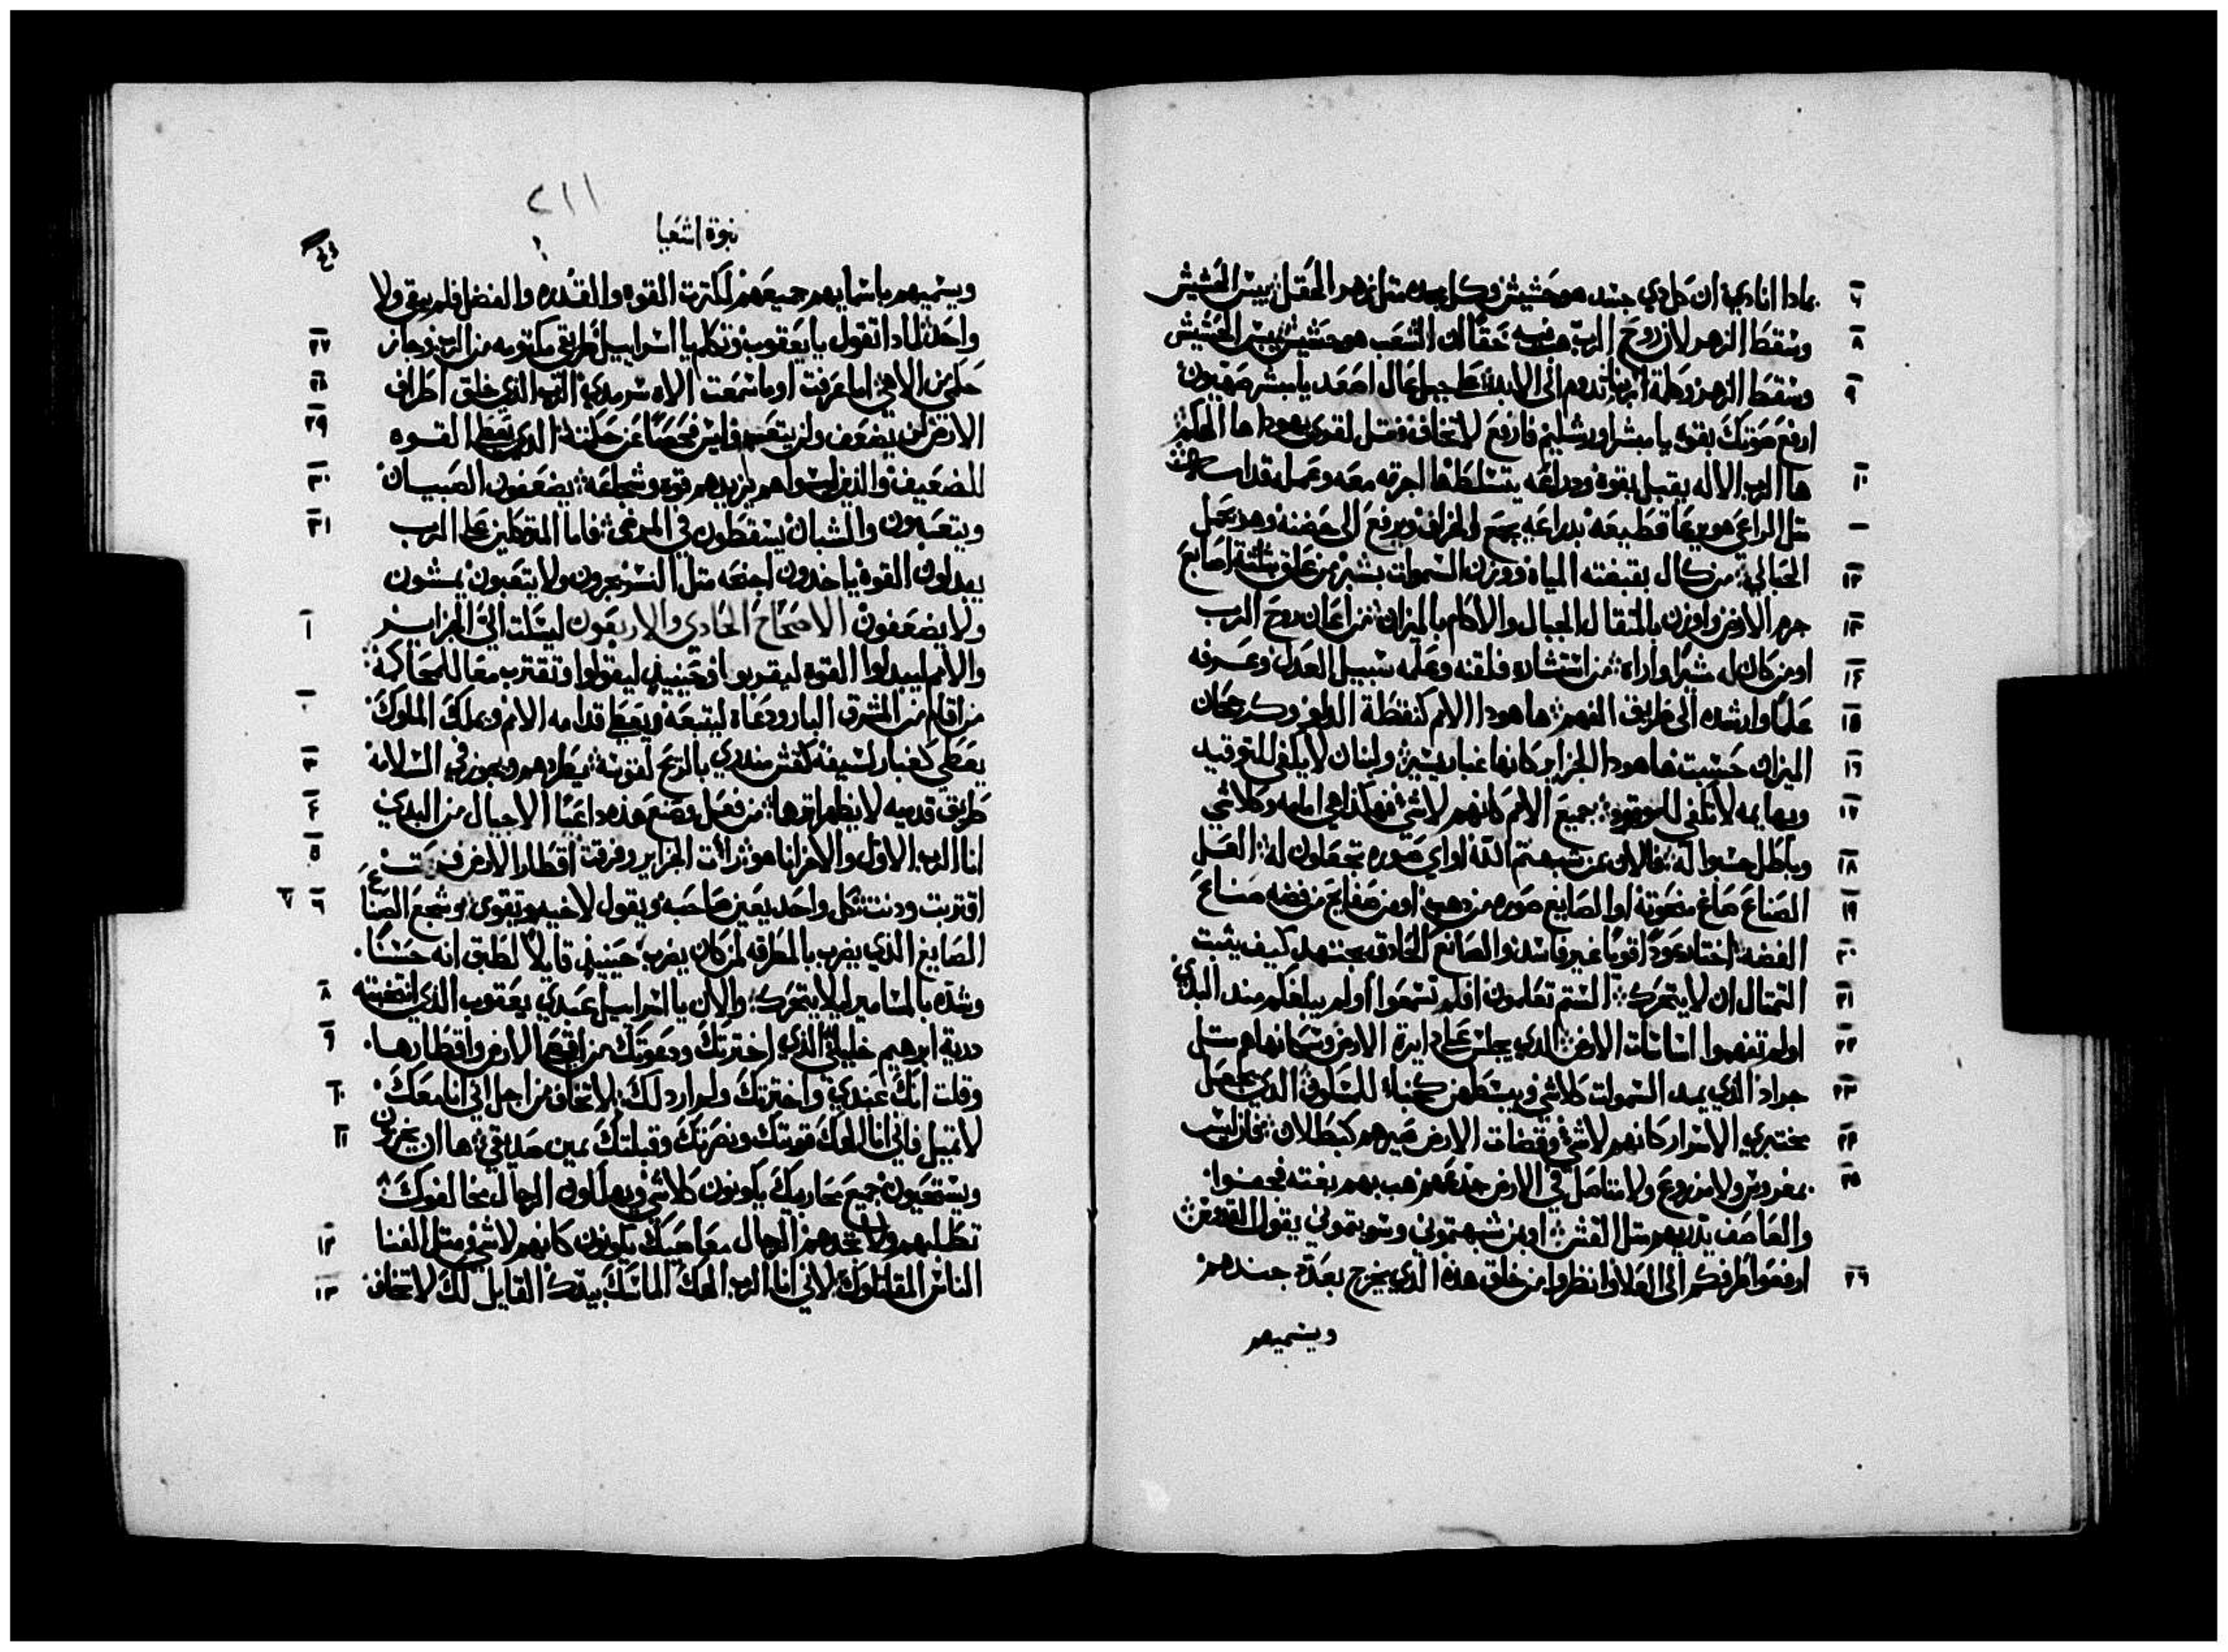 بمادا انادي ان كل دي جسد هو حشيش وكل مجده مثل زهر الحقل يبس الحشيش
وسقط الزهر لان روح الرب هبت فيه حقا ان الشعب هو حشيش يبس الحشيش
وسقط الزهر وكلمة الربنا تدوم الى الابد على جبل عال اصعد يا مبشر صهيون
ارفع صوتك بقوه يا مبشر اورشليم فارفع لا تخاف وقل لقوى يهودا ها الهكم
ها الرب الاله يقبل بقوة ودراعه يتسلط ها اجرته معه وعمله قدامه
مثل الراعي هو يرعا قطيعه بدراعه يجمع الخراف ويرفع الى حضنه وهو يحمل
الحبالي من كال بقبضته المياه ووزن السموات بشبر من علق بثلثة اصابع
جرم الارض واوزن بالمتقال الجبال والاكام بالميزان من اعان روح الرب
او من كان له مشيرا واراه من استشاره فلقنه وعلمه سبيل العدل وعرفه
علما وارشده الى طريق الفهم ها هودا الامم كنقطة الدلو وكرجحان
الميزان حسبت ها هودا الجزاير كانها غبار يسير ولبنان لا يكفي للتوقيد
وبهايمه لا تكفي للوقود جميع الامم كانهم لاشي فهكذا هي امامه وكلاشي
وباطل حسبوا له فالان بمن شبهتم الله او اي صوره تجعلون له العل
الصناع صاغ منحوتة او الصايغ صوره من دهب او من صفايح من فضه صناع
الفضه اختار عودا قويا غير فاسد والصانع الحادق يجتهد كيف يثبت
التمتال ان لا يتحرك الستم تعلمون افلم تسمعوا او لم يبلغكم مند البدي
اولم تفهموا اساسات الارض الدي يجلس على دايرة الارض وسكانها هم مثل
جراد الدي يمد السموات كلاشي ويبسطهن كخباء للسكون الدي يجعل
مختبري الاسرار كانهم لاشي وقضات الارض صيرهم كبطلان بحال ليس
بمغروس ولا مزروع ولا متاصل في الارض جدعهم هب بهم بغته فجفوا
والعاصف يدريهم مثل القش او بمن شبهتموني وسويتموني يقول القدوس
ارفعوا طرفكم الى العلا وانظروا من خلق هذه الدي يخرج بعدة جندهم
ويسميهم
٢١١
نبوة اشعيا
ويسميهم باسمايهم جميعهم لكترت القوه والقدره والفضل فلم يبق ولا
واحد لمادا تقول يا يعقوب وتكلم يا اسراييل طريقي مكتومه من الرب وجاز
حكمي من الاهي اما عرفت او ما سمعت الاه سرمدي الرب الدي خلق اطراف
الارض لن يضعف ولن يتعب وليس فحصا عن حكمته الدي يعطي القوه
للضعيف والدين ليسوا هم يزيدهم قوة وشجاعه يضعفون الصبيان
ويتعبون والشبان يسقطون في المرض فاما المتوكلين على الرب
يبدلون القوة ياخدون اجنحه مثل النسر يجرون ولا يتعبون يمشون
ولا يضعفون الاصحاح الحادي والاربعون ليسكت الي الجزاير
والامم ليبدلوا القوه ليقربوا وحينيد ليقولوا وتقترب معا للمحاكمة
من اقام من المشرق البار ودعاه ليتبعه ويعطي قدامه الامم ويملك الملوك
يعطي كغبار لسيفه كقش مندري بالريح لقوسه يطردهم ويجوز في السلامة
طريق قدميه لا يظهر اترها من فعل وصنع هذه داعيا الاجيال من البدي
انا الرب الاول والاخر انا هو رات الجزاير وفرقت اقطار الارض
اقتربت ودنت كل واحد يعين صاحبه ويقول لاخيه وتقوى وشجع الصناع
الصايغ الدي يضرب بالمطرقه لمن كان يضرب حينيد قايلا لطبق انه حسنا
وشده بالمسامير ليلا يتحرك والان يا اسراييل عبدي يعقوب الدي انتخبته
درية ابرهيم خليلي الدي اخترتك ودعوتك من اقصا الارض واقطارها
وقلت انك عبدي واخترتك ولم اردلك لا تخاف من اجل اني انا معك
لا تميل فاني انا الهك قويتك ونصرتك وقبلتك بمين صديقي ها ان يخزون
ويستحيون جميع محاربيك يكونون كلاشي ويهلكون الرجال مخالفوك
تطلبهم ولا تجدهم الرجال معاصيك يكونون كانهم لاشي ومثل الفنا
الناس المقاتلوك لاني انا الرب الهك الماسك بيدك القايل لك لا تخاف